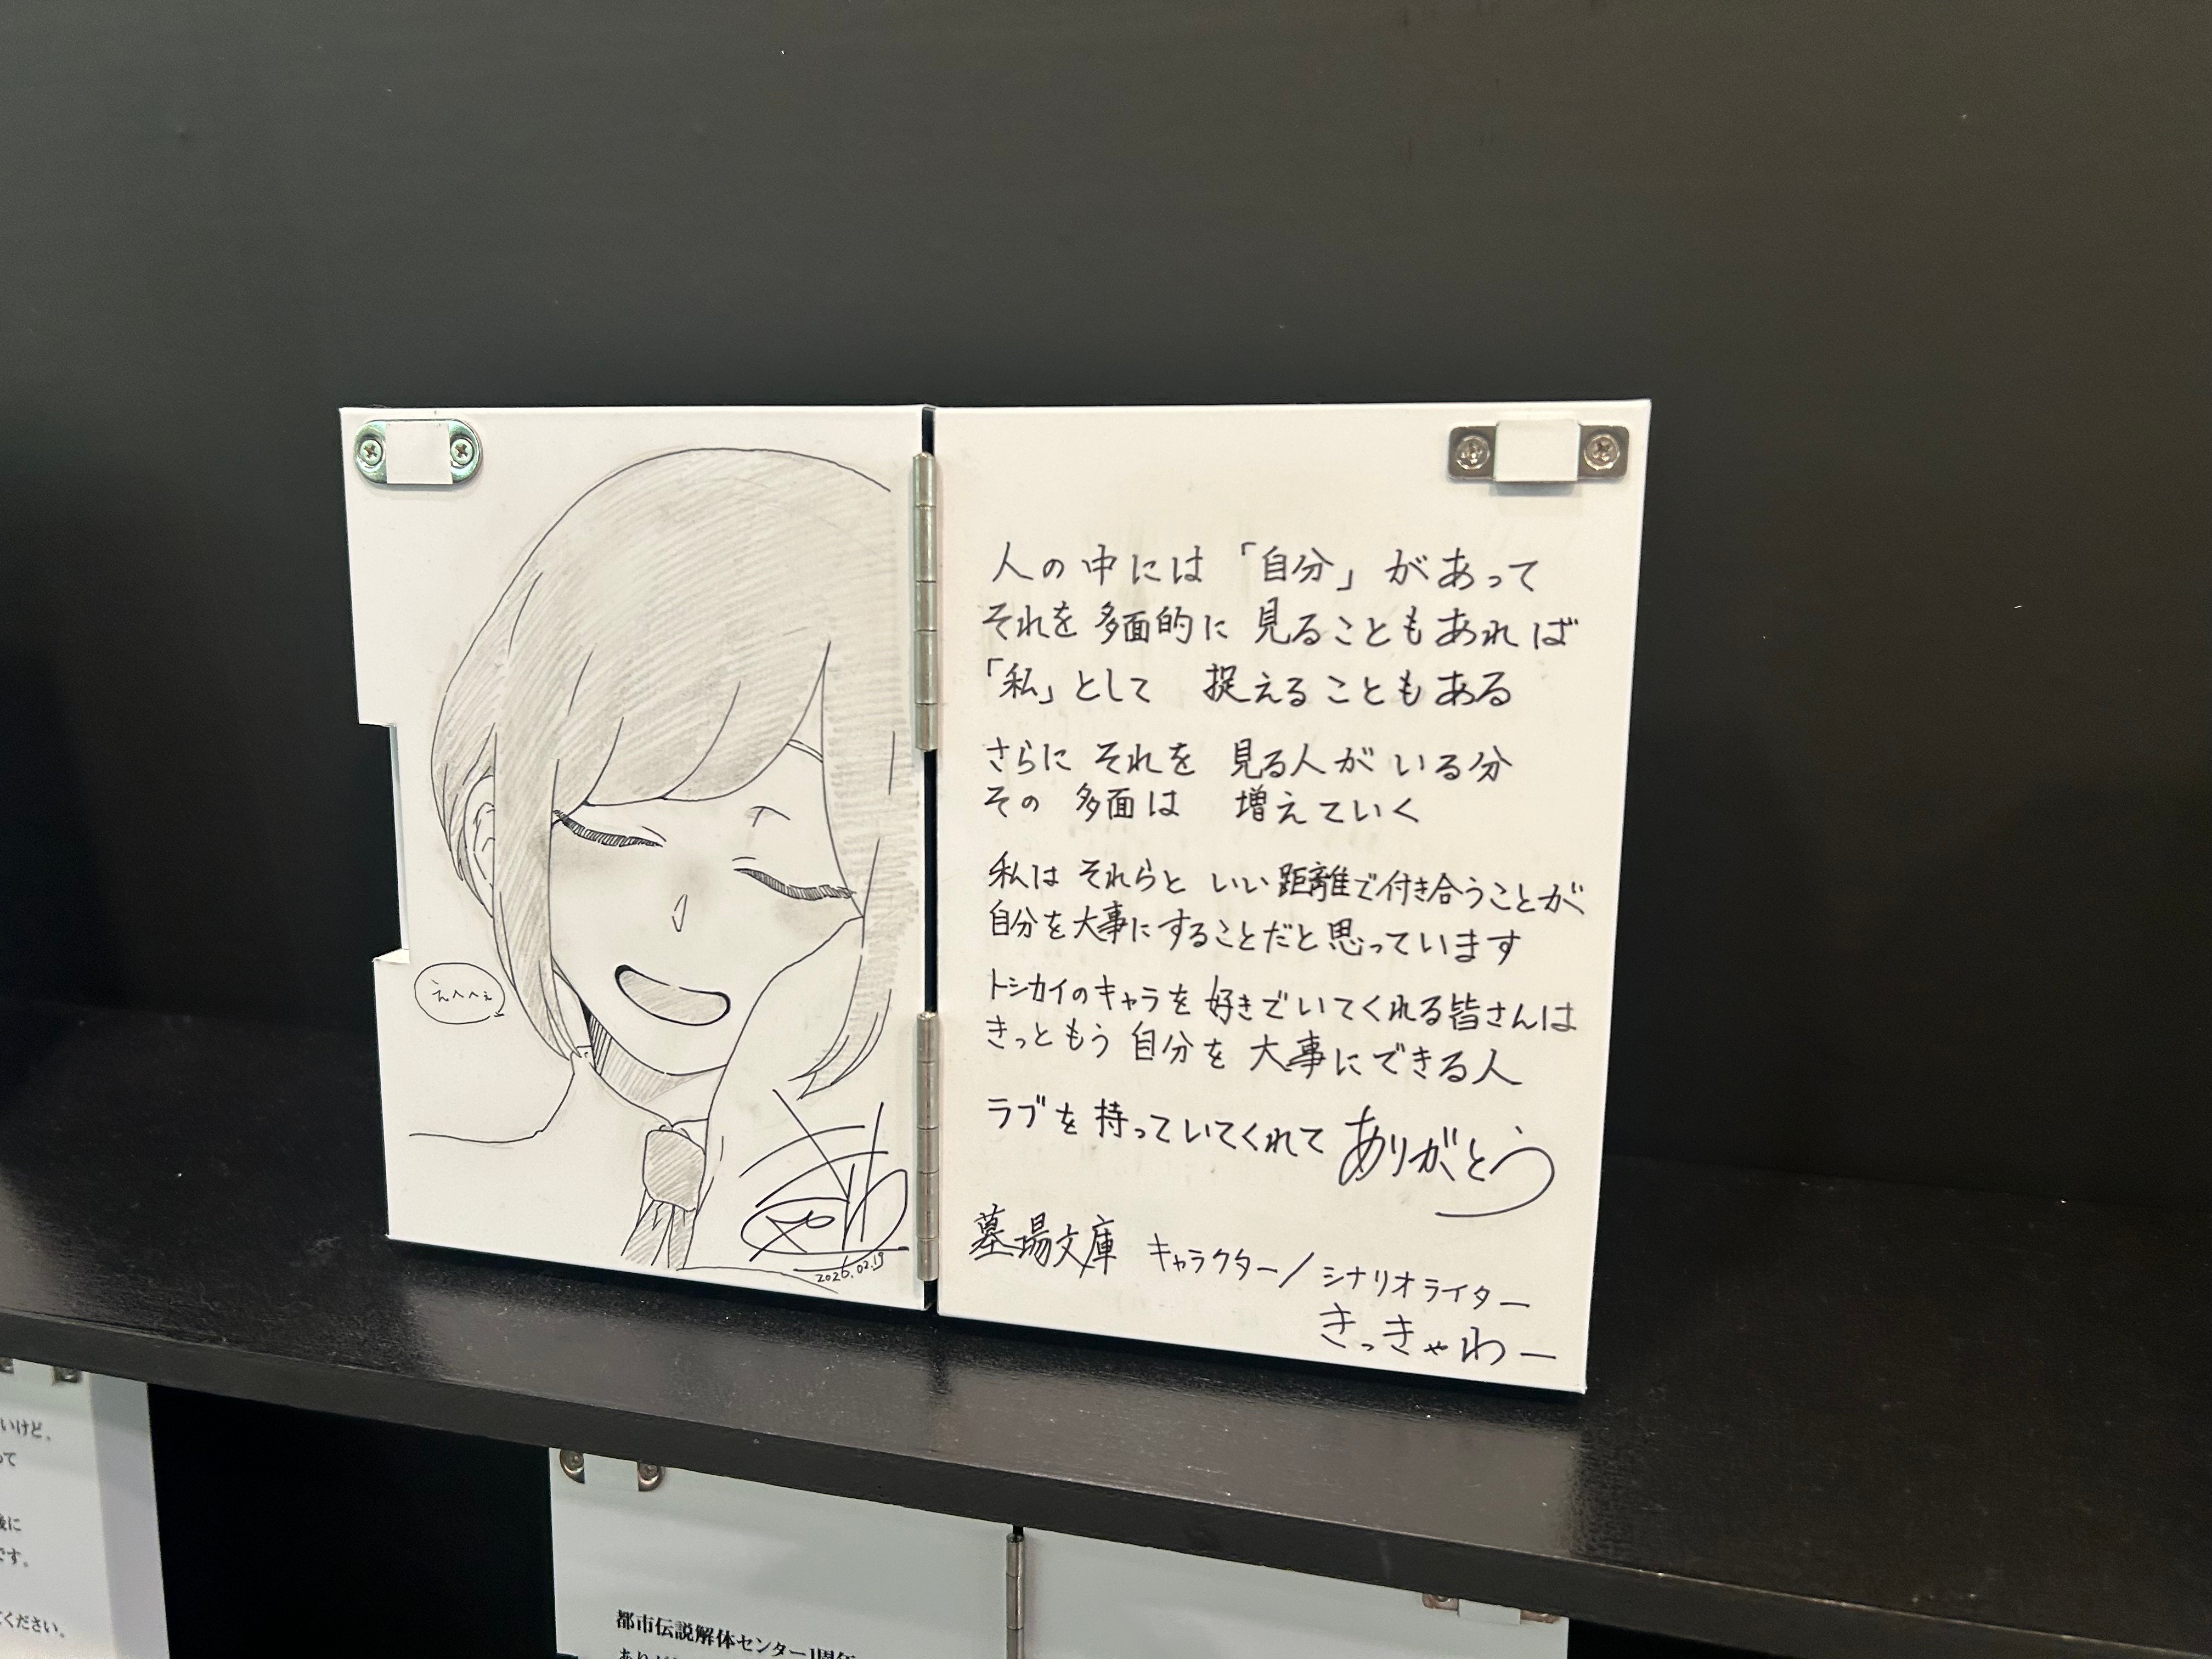 えへへぇ
2026.02.13
人の中には「自分」があって
それを多面的に見ることもあれば
「私」として 捉えることもある
さらに それを 見る人がいる分
その 多面は 増えていく
私は それらと いい距離で付き合うことが
自分を大事にすることだと思っています
トシカイのキャラを好きでいてくれる皆さんは
きっともう 自分を 大事にできる人
ラブを持っていてくれて ありがとう
墓場文庫 キャラクター/シナリオライター
きっきゃわー
いけど、
って
後に
です。
ください。
都市伝説解体センター1周年